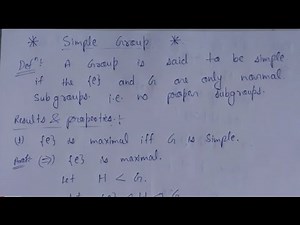 * Simple Group *
Defn: A Group is said to be simple
if the {e} and G are only normal
subgroups i.e. no proper subgroups.
Results & properties:
(1) {e} is maximal iff G is simple.
Proof (⇒) {e} is maximal.
Let H < G.